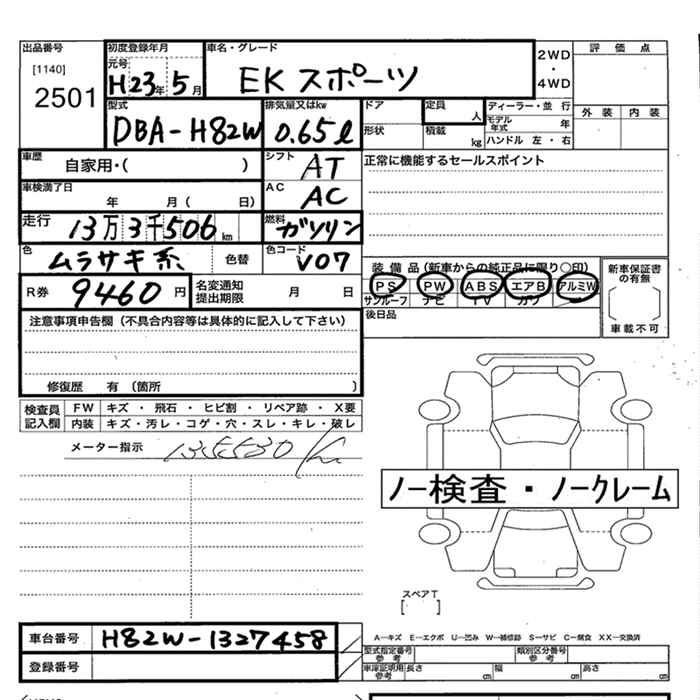 出品番号 初度登録年月 車名・グレード 2WD ・ 4WD 評価点
[1140] 元号
2501 H23年 5月 EK スポーツ
型式 排気量又はkw ドア 定員 人 ディーラー・並行 外装 内装
DBA-H82W 0.65ℓ 形状 積載 kg モデル年式 年
ハンドル 左・右
車歴 自家用・( ) シフト AT 正常に機能するセールスポイント
車検満了日 年 月( 日) AC AC
走行 13万3千506km 燃料 ガソリン
色 ムラサキ系 色替 色コード V07
装備品(新車からの純正品に限り○印) 新車保証書の有無
R券 9460円 名変通知提出期限 月 日 PS PW ABS エアB アルミW
サンルーフ ナビ TV カワ
車載不可
注意事項申告欄(不具合内容等は具体的に記入して下さい) 後日品
修復歴 有(箇所 )
検査員記入欄 FW キズ・飛石・ヒビ割・リペア跡・X要
内装 キズ・汚レ・コゲ・穴・スレ・キレ・破レ
メーター指示
ノー検査・ノークレーム
スペアT
[ ]
車台番号 H82W-1327458 A—キズ E—エクボ U—凹み W—補修跡 S—サビ C—腐食 XX—交換済
型式指定番号 参考 類別区分番号 参考
登録番号 車庫証明用 参考 長さ cm 幅 cm 高さ cm